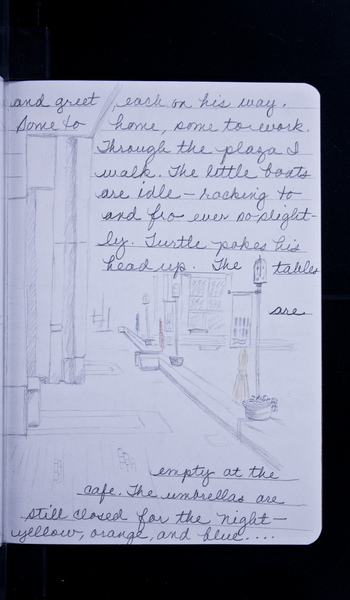 and greet, each on his way.
Some to home, some to work.
Through the plaza I
walk. The little boats
are idle - rocking to
and fro ever so slight-
ly. Turtle pokes his
head up. The tables
are
empty at the
cafe. The umbrellas are
still closed for the night -
yellow, orange, and blue....